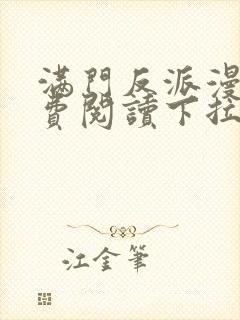 滿門反派漫
費閱讀下拉
江金筆